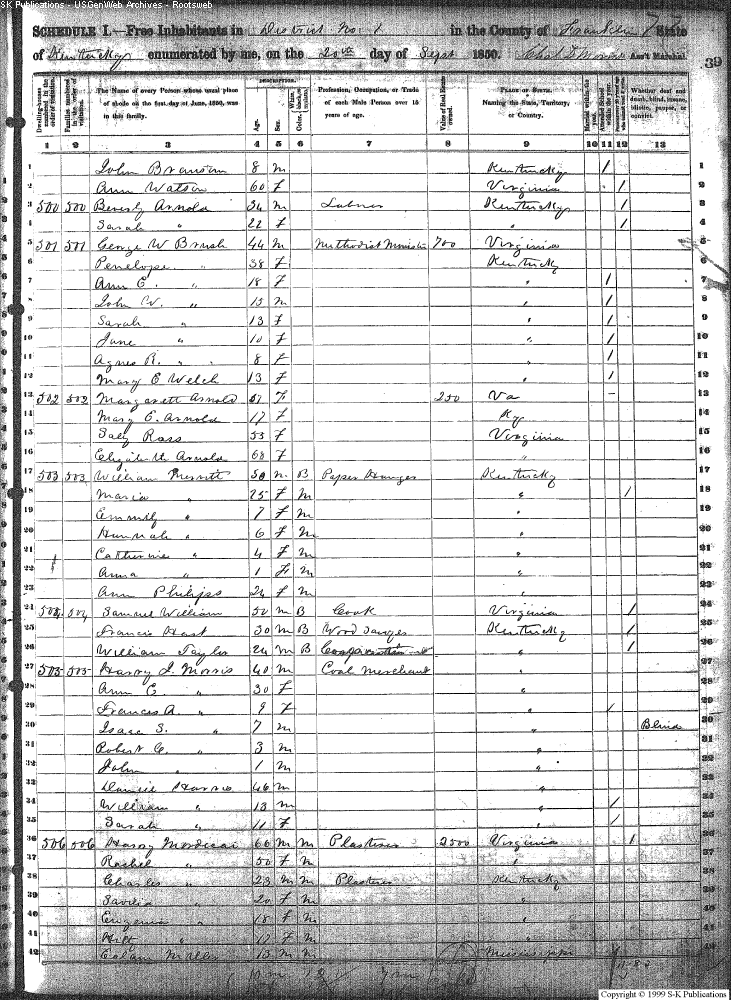 S-K Publications - USGenWeb Archives - Rootsweb
SCHEDULE I.—Free Inhabitants in District No. 1 in the County of Franklin State
of Kentucky enumerated by me, on the 20th day of Sept 1850. Ass't Marshal.
39
Dwelling-houses numbered in the order of visitation.
Families numbered in the order of visitation.
The Name of every Person whose usual place of abode on the first day of June, 1850, was in this family.
DESCRIPTION.
Age.
Sex.
Color.
Profession, Occupation, or Trade of each Male Person over 15 years of age.
Value of Real Estate owned.
PLACE OF BIRTH. Naming the State, Territory, or Country.
Married within the year.
Attended School within the year.
Whether deaf and dumb, blind, insane, idiotic, pauper, or convict.
1 2 3 4 5 6 7 8 9 10 11 12 13
1 John 8 m Kentucky / 1
2 Ann Watson 60 f Virginia / 2
3 500 500 Beverly Arnold 34 m Kentucky / 3
4 Sarah " 22 f " / 4
5 501 501 George W Brush 44 m Methodist Minister 700 Virginia 5
6 Penelope " 38 f Kentucky 6
7 Ann E. " 18 f " / 7
8 John W. " 15 m " / 8
9 Sarah " 13 f " / 9
10 Jane " 10 f " / 10
11 Agnes R. " 8 f " / 11
12 Mary E Welch 13 f " / 12
13 502 502 Margarett Arnold f 250 Va 13
14 Mary E. Arnold 17 f Ky 14
15 Sally Ross 53 f Virginia 15
16 Elizabeth Arnold 68 f " 16
17 503 503 William Merritt 50 m B Paper Hanger Kentucky 17
18 Maria " 25 f m " / 18
19 Emmily " 7 f m " 19
20 Hannah " 6 f m " 20
21 Catherine " 4 f m " 21
22 Anna " 1 f m " 22
23 Ann Philips 24 f m " 23
24 504 504 Samuel William 50 m B Cook Virginia / 24
25 Francis 30 m B Wood Kentucky / 25
26 William Taylor 24 m B " / 26
27 505 505 Harry I. Morris 40 m Coal Merchant " 27
28 Ann E " 30 f " 28
29 Frances A. " 9 f " / 29
30 Isaac S. " 7 m " Blind 30
31 Robert C. " 3 m " 31
32 John " 1 m " 32
33 Harris 46 m " 33
34 William " 13 m " / 34
35 Sarah " 11 f " / 35
36 506 506 Harry Mordecai 60 m m Plasterer 2500 Virginia / 36
37 Rachel " 50 f m " 37
38 Charles " 23 m m Plasterer Kentucky 38
39 " 20 f m " 39
40 Eugenia " 18 f m " 40
41 " 17 f m " 41
42 15 m Mississippi 42
Copyright © 1999 S-K Publications